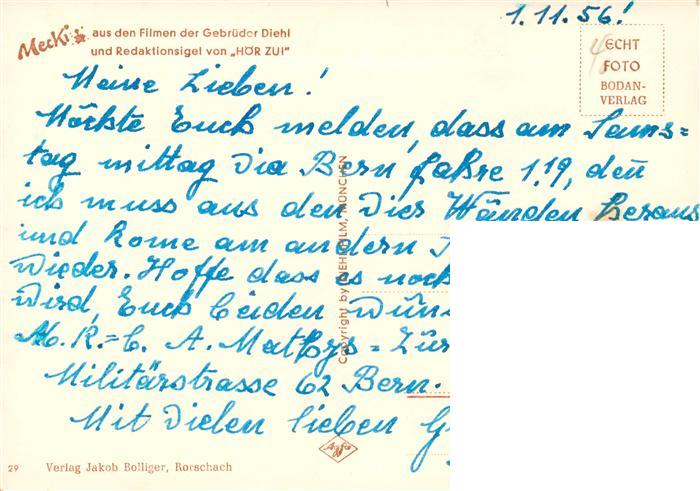 1.11.56!
Mecki aus den Filmen der Gebrüder Diehl
und Redaktionsigel von „HÖR ZU!"
ECHT
FOTO
BODAN-
VERLAG
Meine Lieben!
Möchte Euch melden, dass am Sams=
tag mittag via Bern fahre 1.19, den
ich muss aus den vier Wänden heraus
und kome am andern
wieder. Hoffe dass es noch
wird, Euch beiden
A. Mathys =
Militärstrasse 62 Bern.
Mit vielen lieben
Copyright by DIEHLFILM, MÜNCHEN
Agfa
29 Verlag Jakob Bolliger, Rorschach